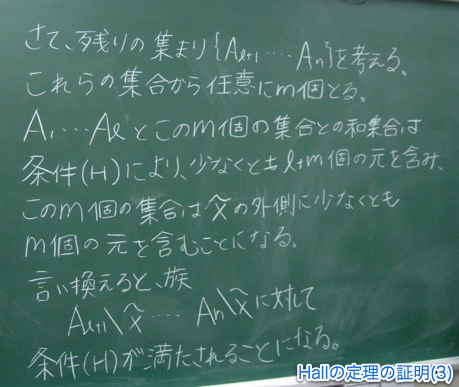 さて、残りの集まり{Aℓ+1 ‥‥ An}を考える。
これらの集合から任意にm個とる。
A1 ‥‥ Aℓとこのm個の集合との和集合は
条件(H)により、少なくともℓ+m個の元を含み、
このm個の集合はX̂の外側に少なくとも
m個の元を含むことになる。
言い換えると、族
Aℓ+1\X̂ ‥‥ An\X̂に対して
条件(H)が満たされることになる。
Hallの定理の証明(3)